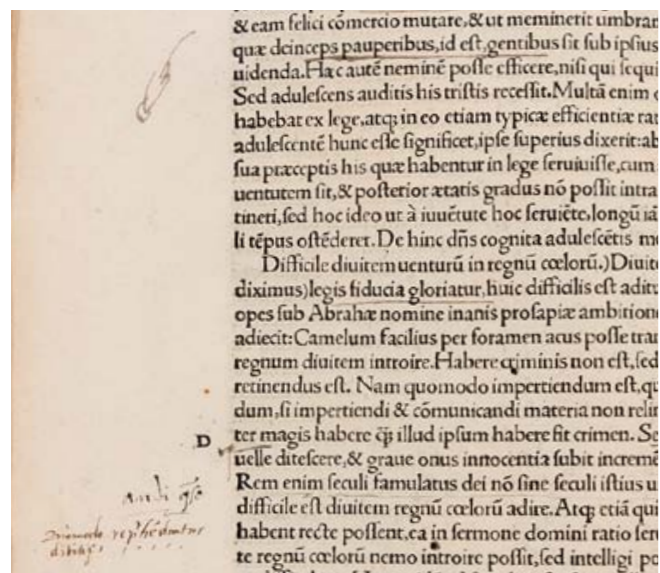 & eam felici cōmercio mutare,& ut meminerit umbrar
quæ deinceps pauperibus,id est,gentibus sit sub ipsius
uidenda.Hæc autē neminē posse efficere,nisi qui sequi
Sed adulescens auditis his tristis recessit.Multā enim
habebat ex lege,atq; in eo etiam typicæ efficientiæ rat
adulescentē hunc esse significet,ipse superius dixerit:ab
sua præceptis his quæ habentur in lege seruiuisse,cum
uentutem sit,& posterior ætatis gradus nō possit intra
tineri,sed hoc ideo ut à iuuētute hoc seruiēte,longū iā
li tēpus ostēderet.De hinc dñs cognita adulescētis mo
Difficile diuitem uenturū in regnū cœlorū.)Diuite
diximus)legis fiducia gloriatur,huic difficilis est aditu
opes sub Abrahæ nomine inanis prosapiæ ambitione
adiecit:Camelum facilius per foramen acus posse tran
regnum diuitem introire.Habere criminis non est,sed
retinendus est. Nam quomodo impertiendum est,qu
dum,si impertiendi & cōmunicandi materia non relin
D
ter magis habere q̄; illud ipsum habere fit crimen. Se
uelle ditescere,& graue onus innocentia subit incremē
Rem enim seculi famulatus dei nō sine seculi istius u
audi
difficile est diuitem regnū cœlorū adire.Atq; etiā qui
habent recte possent,ea in sermone domini ratio ser
te regnū cœlorū nemo introire possit,sed intelligi po